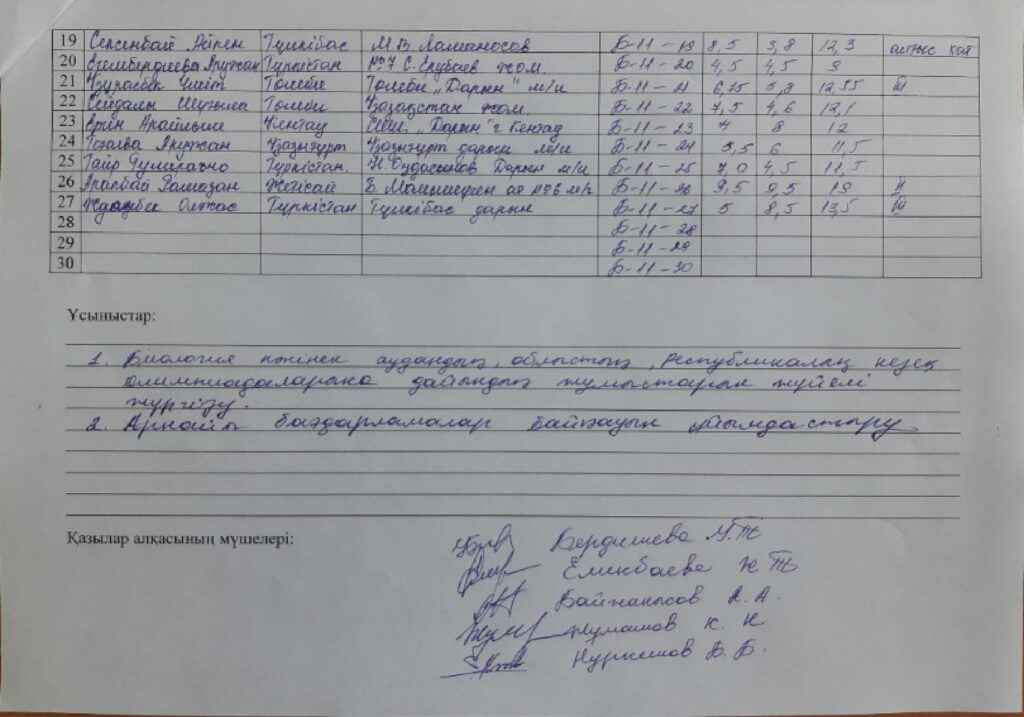 19 Сейсенбай Түлкібас М.В. Ломоносов Б-11-19 8,5 3,8 12,3 алғыс хат
20 Түркістан №7 С. Ерубаев жом. Б-11-20 4,5 4,5 9
21 Төлеби Төлеби „Дарын" м/и Б-11-21 6,75 5,8 12,55 III
22 Сейдалы Төлеби Қазақстан жом. Б-11-22 7,5 4,6 12,1
23 Ерен Арайлым Кентау „Дарын" г Кентау Б-11-23 4 8 12
24 Аружан Қазығұрт Қазығұрт дарын м/и Б-11-24 5,5 6 11,5
25 Таир Гулшахно Түркістан. Дарын м/и Б-11-25 7,0 4,5 11,5
26 Арапбай Рамазан Жетісай №6 м/г Б-11-26 9,5 9,5 19 II
27 Олжас Түркістан Түлкібас дарын Б-11-27 5 8,5 13,5 III
28 Б-11-28
29 Б-11-29
30 Б-11-30
Ұсыныстар:
1. Биология пәнінен аудандық, облыстық, республикалық кезең
олимпиадаларына дайындық жұмыстарын жүйелі
жүргізу.
2. Арнайы бағдарламалар байқауын ұйымдастыру
Қазылар алқасының мүшелері:
Бердишева
Еликбаева
А.А.
Жұматов К. К
Нуркешов Б.Б.